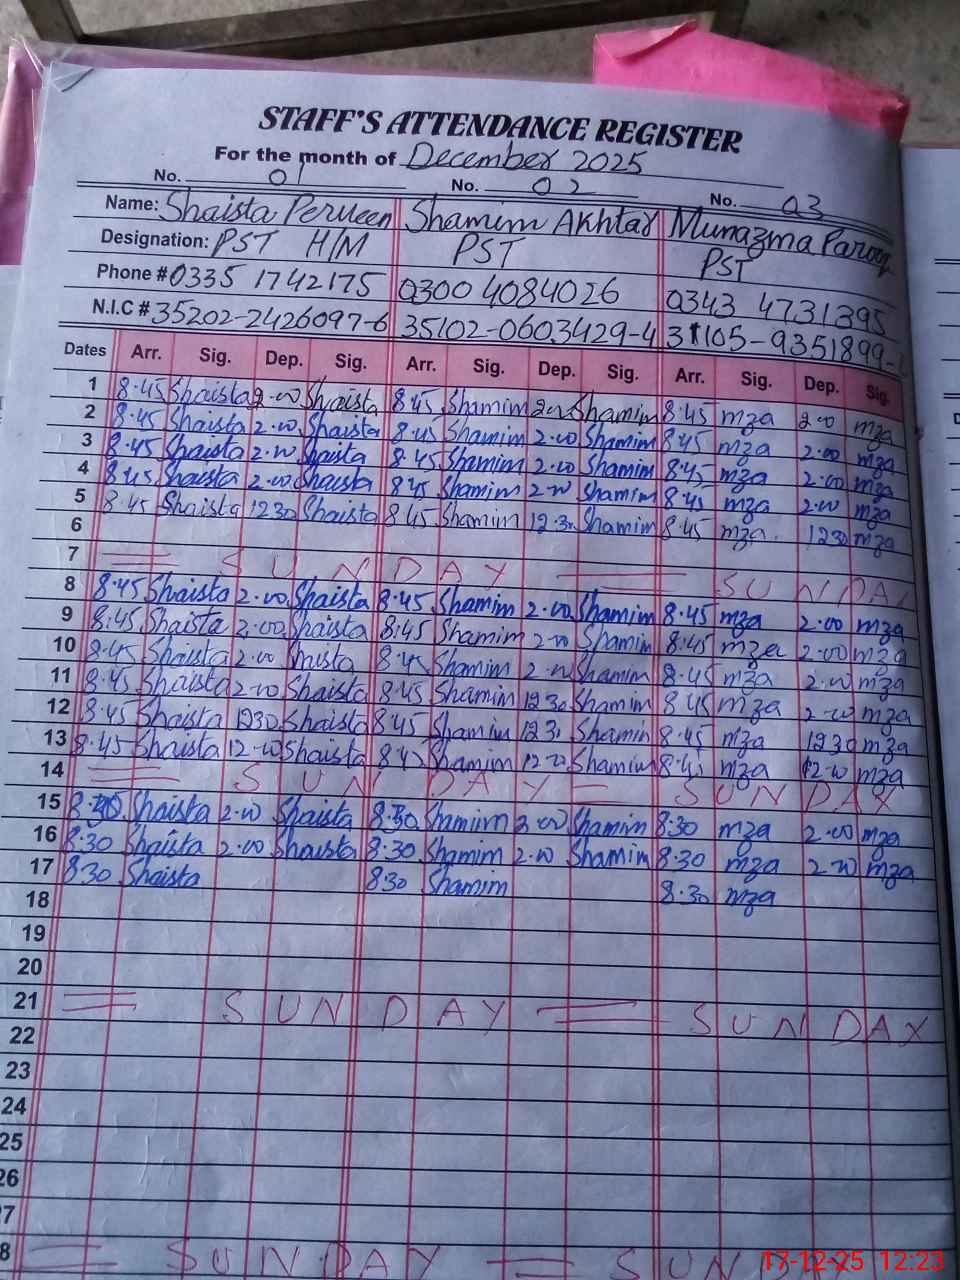 STAFF'S ATTENDANCE REGISTER
For the month of December 2025
No. 01 No. 02 No. 03
Name: Shaista Perveen Shamim Akhtar Munazma Farooq
Designation: PST H/M PST PST
Phone # 0335 1742175 0300 4084026 0343 4731395
N.I.C # 35202-2426097-6 35102-0603429-4 31105-9351899-
Dates Arr. Sig. Dep. Sig. Arr. Sig. Dep. Sig. Arr. Sig. Dep. Sig.
1 8.45 Shaista 2.00 Shaista 8.45 Shamim 2.00 Shamim 8.45 mza 2.00 mza
2 8.45 Shaista 2.00 Shaista 8.45 Shamim 2.00 Shamim 8.45 mza 2.00 mza
3 8.45 Shaista 2.00 Shaista 8.45 Shamim 2.00 Shamim 8.45 mza 2.00 mza
4 8.45 Shaista 2.00 Shaista 8.45 Shamim 2.00 Shamim 8.45 mza 2.00 mza
5 8.45 Shaista 1230 Shaista 8.45 Shamim 12.30 Shamim 8.45 mza. 1230 mza
6
7 = SUNDAY = SUNDAY
8 8.45 Shaista 2.00 Shaista 8.45 Shamim 2.00 Shamim 8.45 mza 2.00 mza
9 8.45 Shaista 2.00 Shaista 8.45 Shamim 2.00 Shamim 8.45 mza 2.00 mza
10 8.45 Shaista 2.00 Shaista 8.45 Shamim 2.00 Shamim 8.45 mza 2.00 mza
11 8.45 Shaista 2.00 Shaista 8.45 Shamim 1230 Shamim 8.45 mza 2.00 mza
12 8.45 Shaista 1230 Shaista 8.45 Shamim 1230 Shamim 8.45 mza 1230 mza
13 8.45 Shaista 12.00 Shaista 8.45 Shamim 12.00 Shamim 8.45 mza 12.00 mza
14 = SUNDAY = SUNDAY
15 8.30 Shaista 2.00 Shaista 8.30 Shamim 2.00 Shamim 8:30 mza 2.00 mza
16 8:30 Shaista 2.00 Shaista 8.30 Shamim 2.00 Shamim 8.30 mza 2.00 mza
17 8.30 Shaista 8.30 Shamim 8.30 mza
18
19
20
21 = SUNDAY = SUNDAY
22
23
24
25
26
7
8 = SUNDAY = SUN
17-12-25 12:23